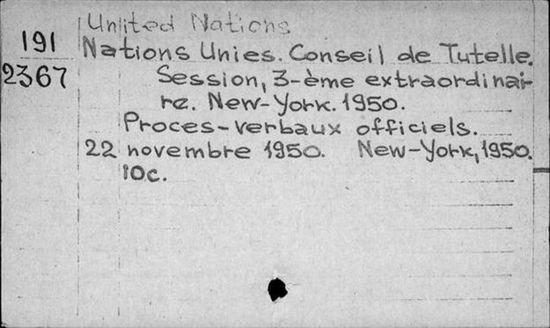 United Nations
191
Nations Unies. Conseil de Tutelle.
2367
Session, 3-ème extraordinai-
re. New-York. 1950.
Proces-verbaux officiels.
22 novembre 1950. New-York, 1950.
10c.